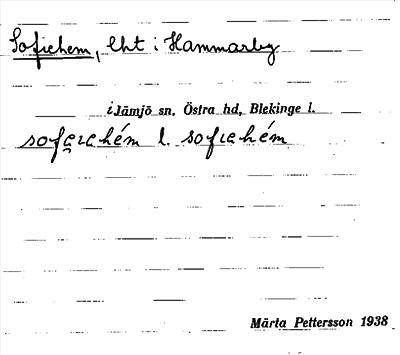 Sofiehem, lht i Hammarby
i Jämjö sn, Östra hd, Blekinge l.
sofęıehém l. sofıehém
Märta Pettersson 1938